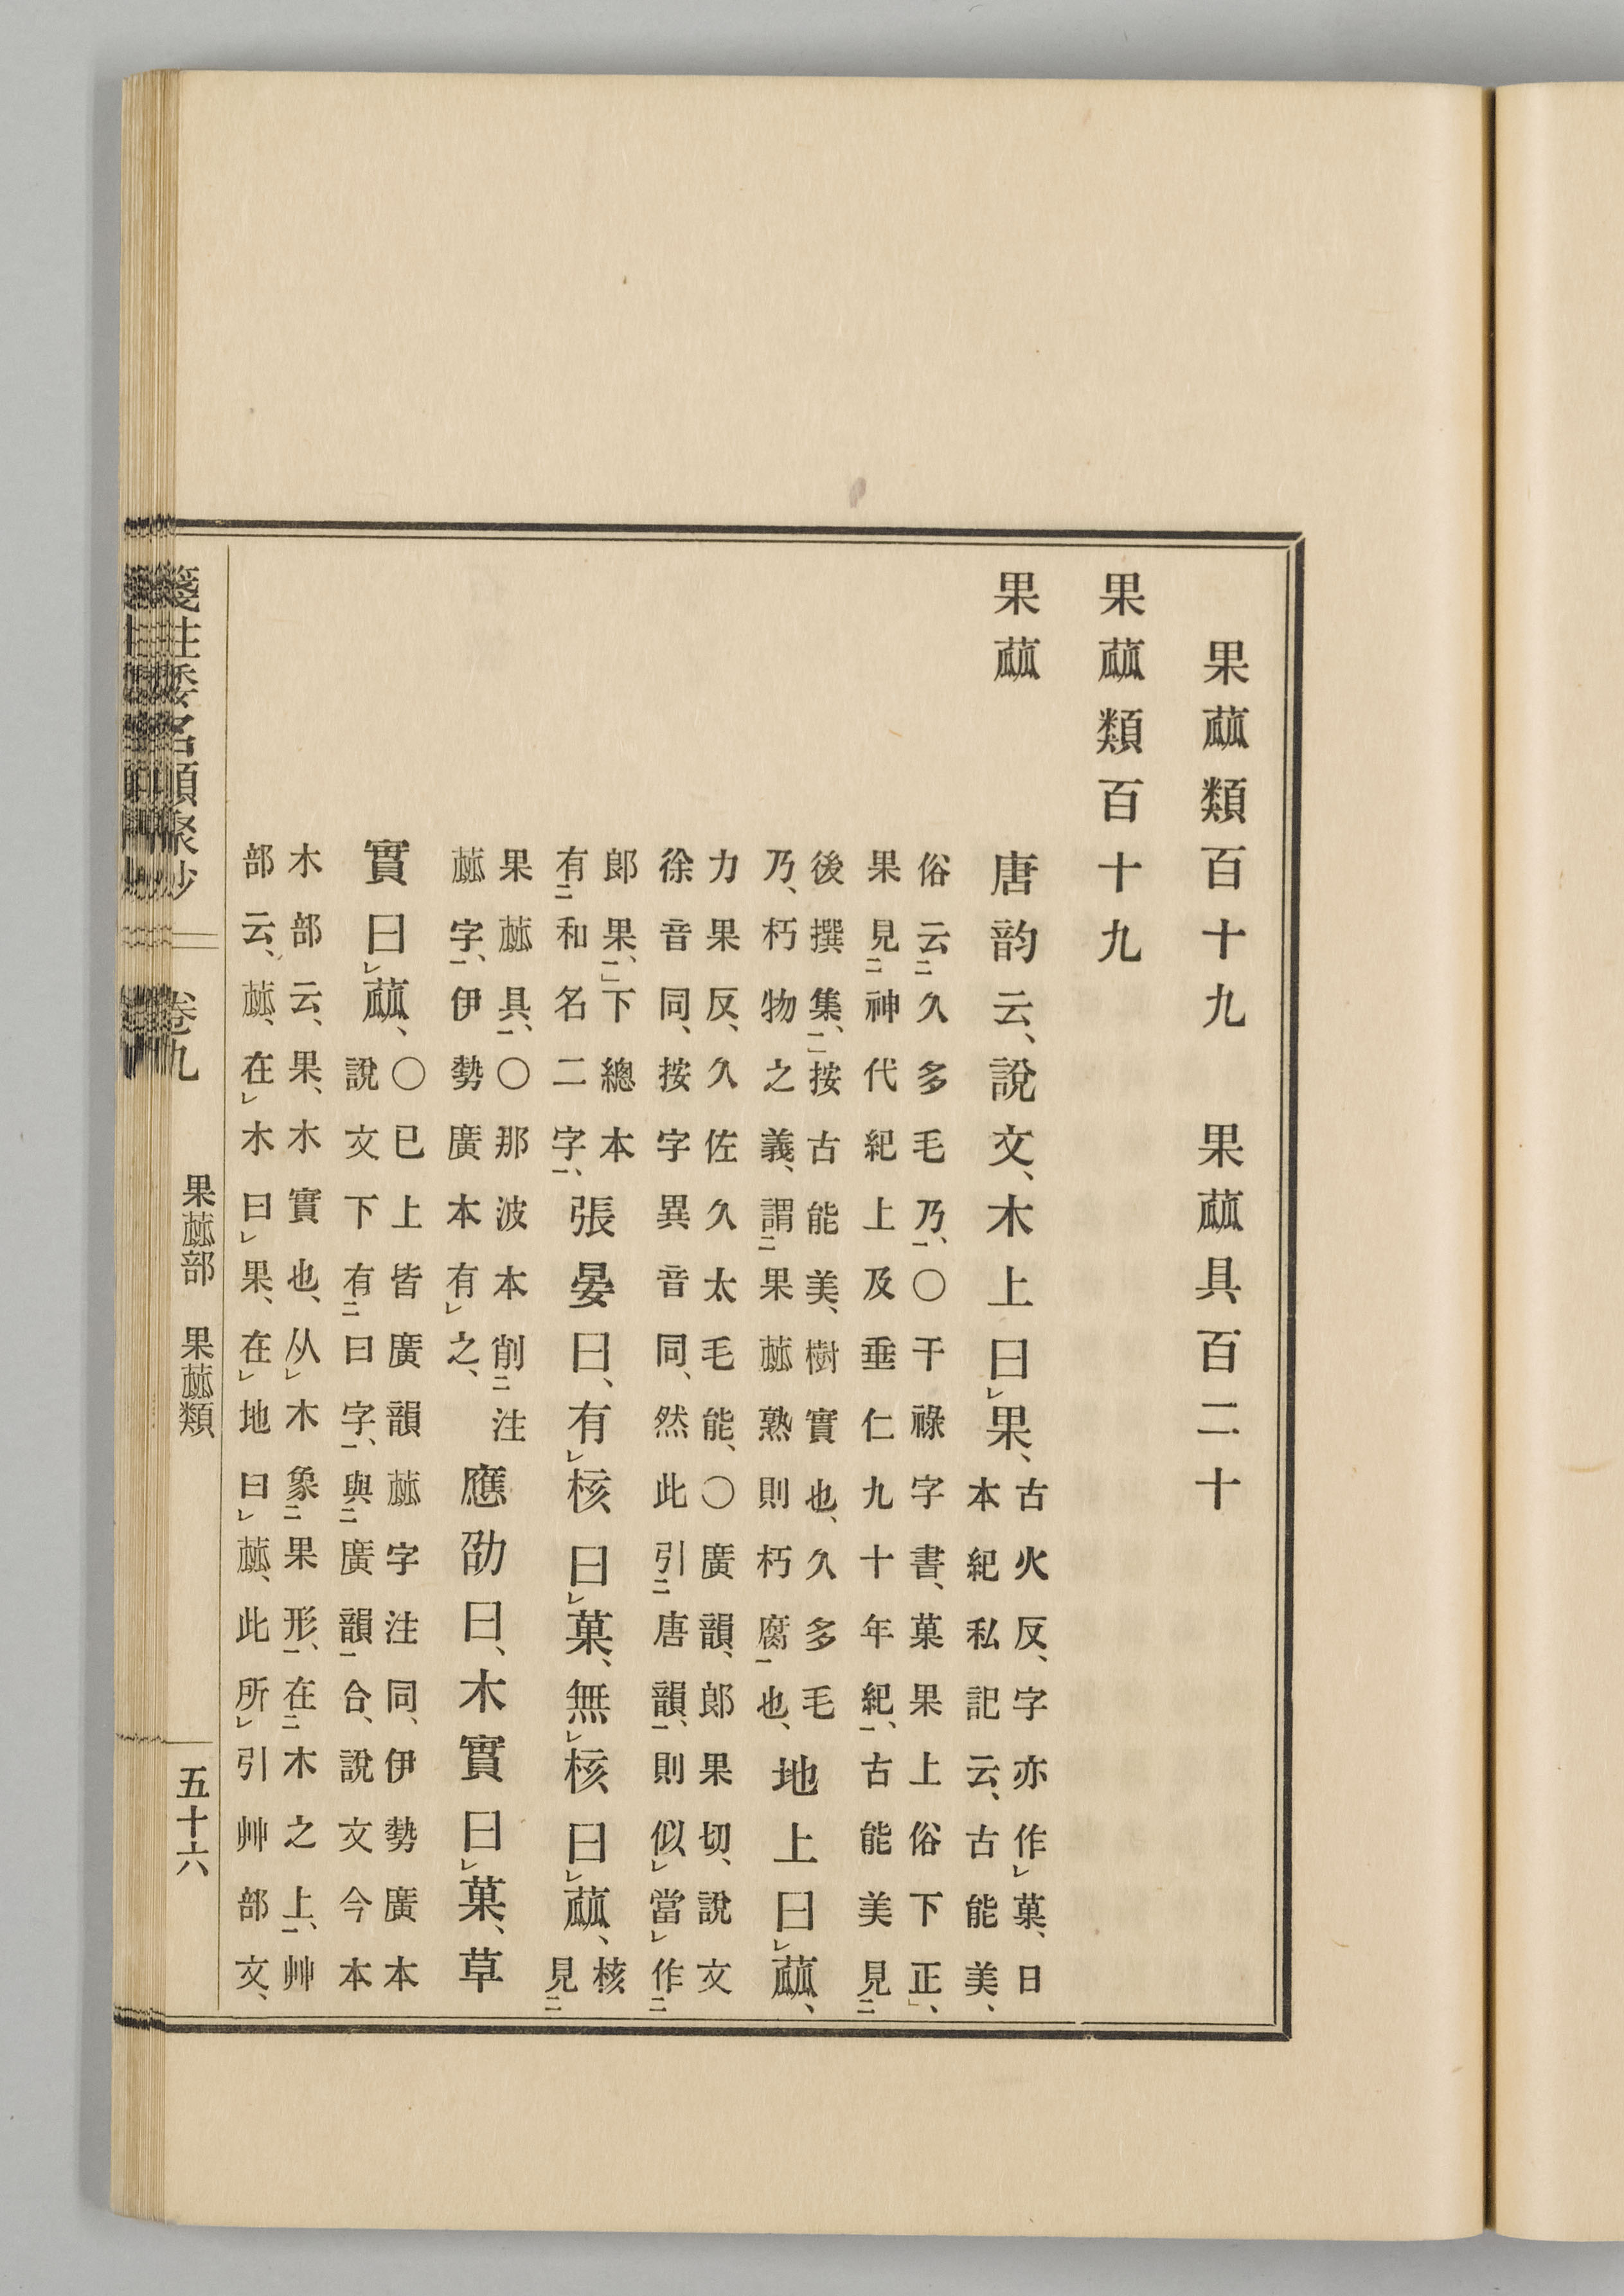 果蓏類百十九　果蓏具百二十
果蓏類百十九
果蓏　唐韵云、說文、木上曰㆑果、
古火反、字亦作㆑菓、日
本紀私記云、古能美、
俗云㆓久多毛乃㆒、〇干祿字書、菓果上俗下正、
果見㆓神代紀上及垂仁九十年紀㆒、古能美見㆓
後撰集㆒、按古能美、樹實也、久多毛
乃、朽物之義、謂㆓果蓏熟則朽腐㆒也、
地上曰㆑蓏、
力果反、久佐久太毛能、〇廣韻、郎果切、說文
徐音同、按字異音同、然此引㆓唐韻㆒、則似㆑當㆑作㆓
郎果㆒、下總本
有㆓和名二字㆒、
張晏曰、有㆑核曰㆑菓、無㆑核曰㆑蓏、
核
見㆓
果蓏具㆒、〇那波本削㆓注
蓏字㆒、伊勢廣本有㆑之、
應劭曰、木實曰㆑菓、草
實曰㆑蓏、
〇已上皆廣韻蓏字注同、伊勢廣本
說文下有㆓曰字㆒、與㆓廣韻㆒合、說文今本
木部云、果、木實也、从㆑木象㆓果形㆒、在㆓木之上㆒、艸
部云、蓏、在㆑木曰㆑果、在㆑地曰㆑蓏、此所㆑引艸部文、
箋注倭名類聚抄　卷九　果蓏部　果蓏類　五十六